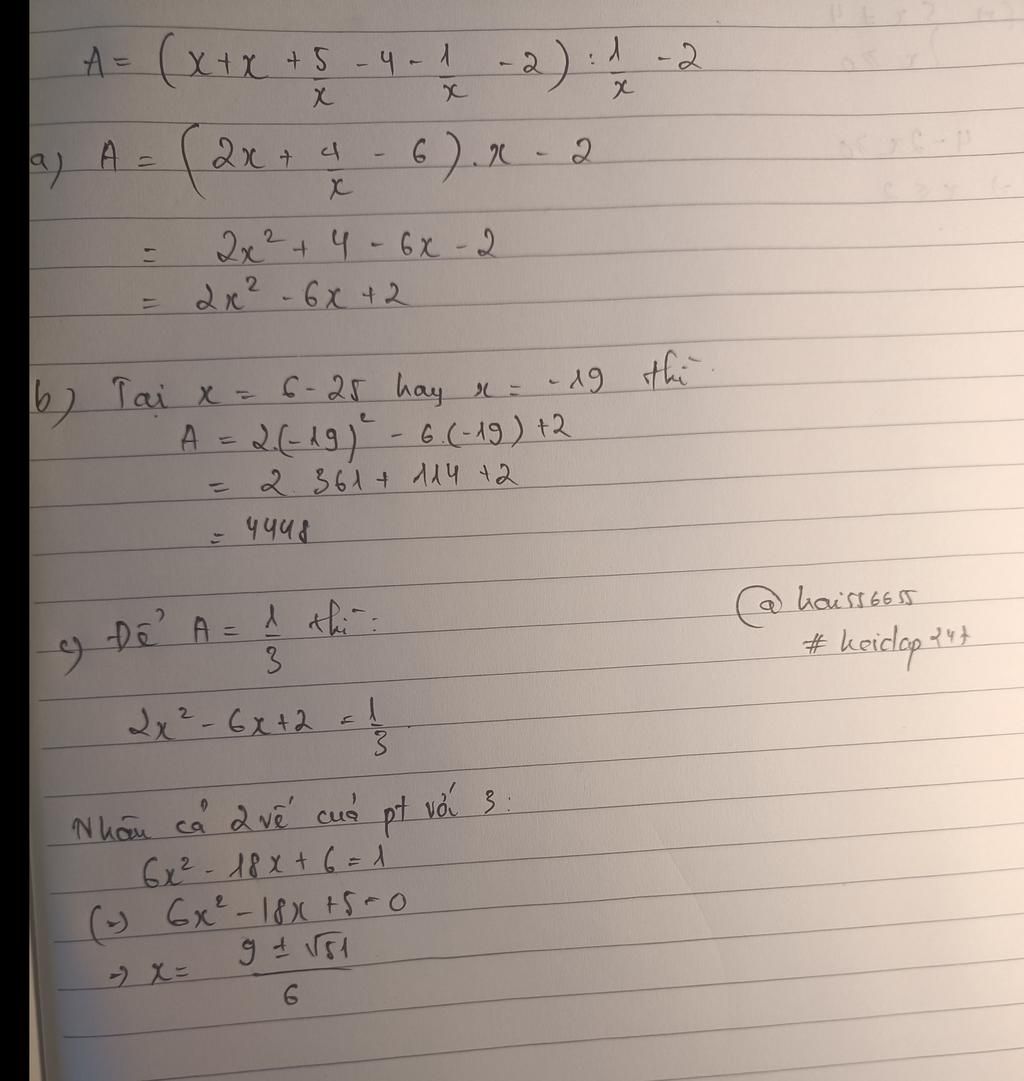 A = (x + x + 5/x - 4 - 1/x - 2) : 1/x - 2
a) A = (2x + 4/x - 6) . x - 2
= 2x² + 4 - 6x - 2
= 2x² - 6x + 2
b) Tại x = 6 - 25 hay x = -19 thì
A = 2.(-19)² - 6.(-19) + 2
= 2. 361 + 114 + 2
= 4448
c) Để A = 1/3 thì :
@hai556655
2x² - 6x + 2 = 1/3
Nhân cả 2 vế của pt với 3 :
6x² - 18x + 6 = 1
(=) 6x² - 18x + 5 = 0
=> x = 9 ± √51 / 6